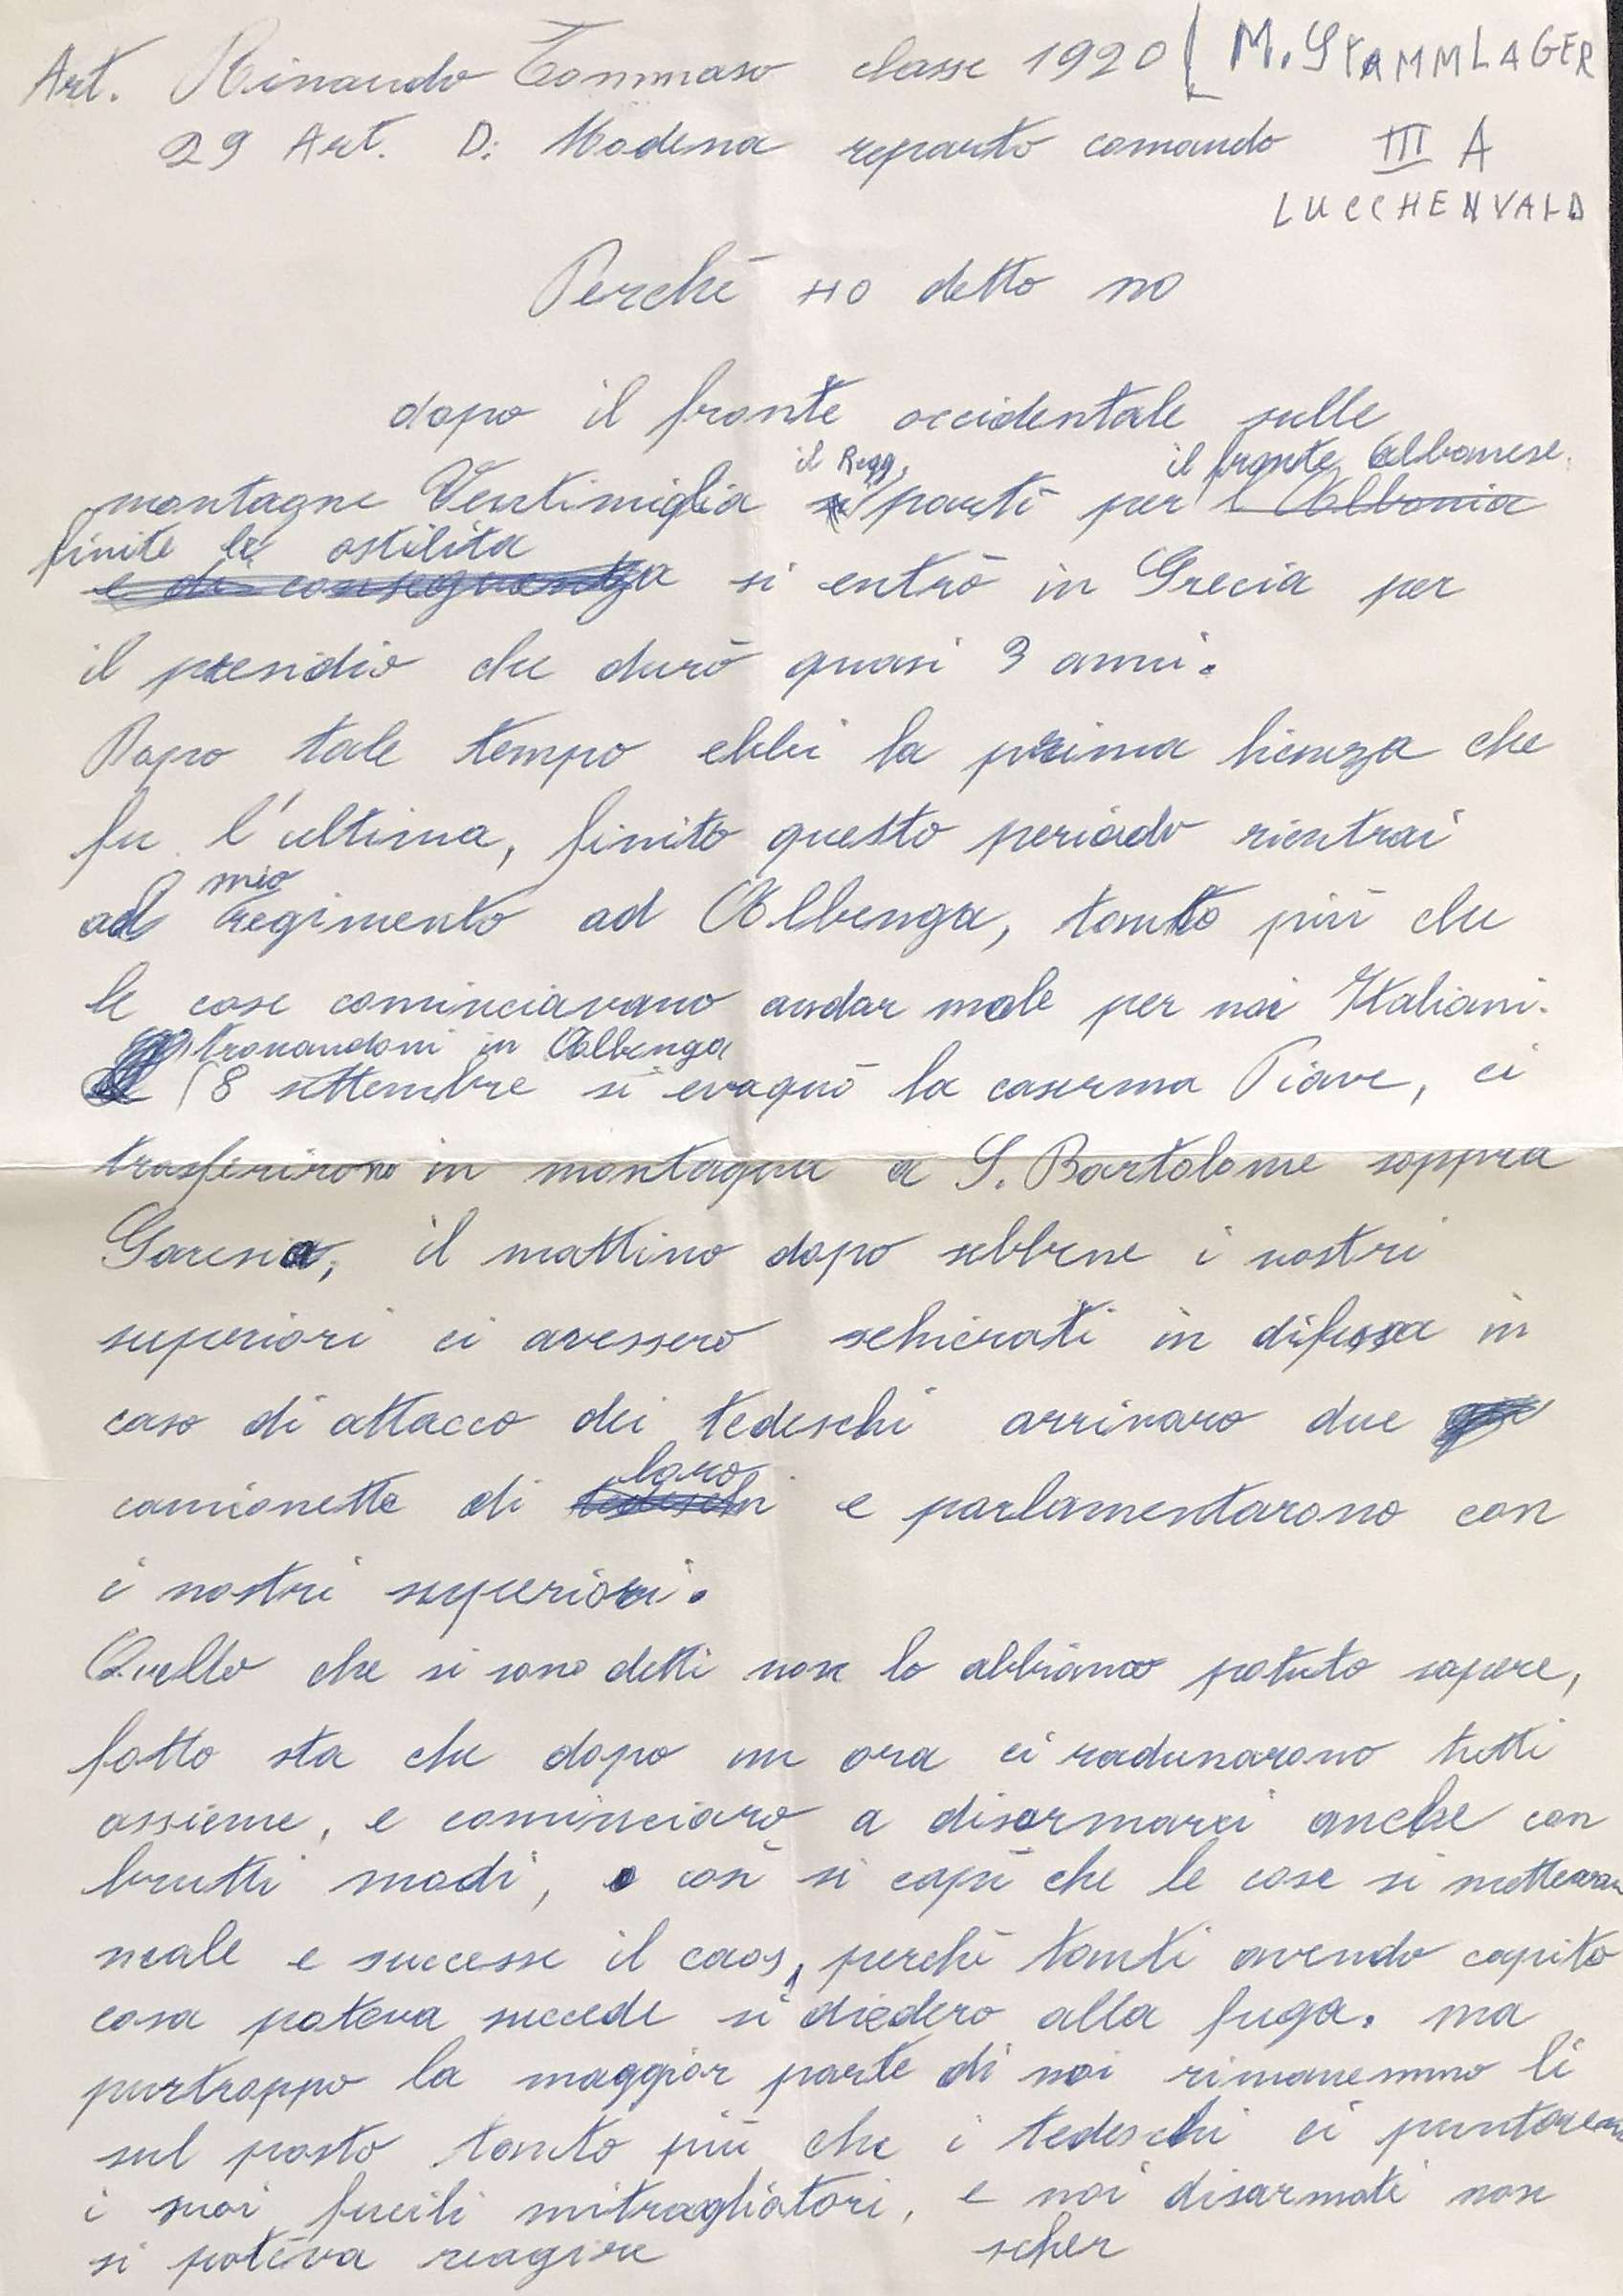 Art. Rinaudo Tommaso classe 1920 ( M. STAMMLAGER
29 Art. D: Modena reparto comando III A
LUCCHENVALD
Perchè HO detto no
dopo il fronte occidentale sulle
il Regg. il fronte Albanese.
montagne Ventimiglia partì per l'Albania
finite le ostilita
e di conseguenza si entrò in Grecia per
il presidio che durò quasi 3 anni.
Dopo tale tempo ebbi la prima licenza che
fu l'ultima, finito questo periodo rientrai
mio
al regimento ad Albenga, tanto più che
le cose cominciavano andar male per noi Italiani.
trovandoni in Albenga
8 settembre si evaquò la caserma Piave, ci
trasferirono in montagna a S. Bartolome soppra
Garesia, il mattino dopo sebbene i nostri
superiori ci avessero schierati in difesa in
caso di attacco dei tedeschi arrivaro due
loro
camionette di tedeschi e parlamentarono con
i nostri superiori.
Quello che si sono detti non lo abbiamo potuto sapere,
fatto sta che dopo un ora ci radunarono tutti
assieme, e cominciaro a disarmarci anche con
brutti modi, e così si capì che le cose si mettevan
male e successe il caos, perchè tanti avendo capito
cosa poteva succede si diedero alla fuga. ma
purtroppo la maggior parte di noi rimanemmo lì
sul posto tanto più che i tedeschi ci
i suoi fucili mitragliatori, e noi disarmati non
si poteva reagire scher